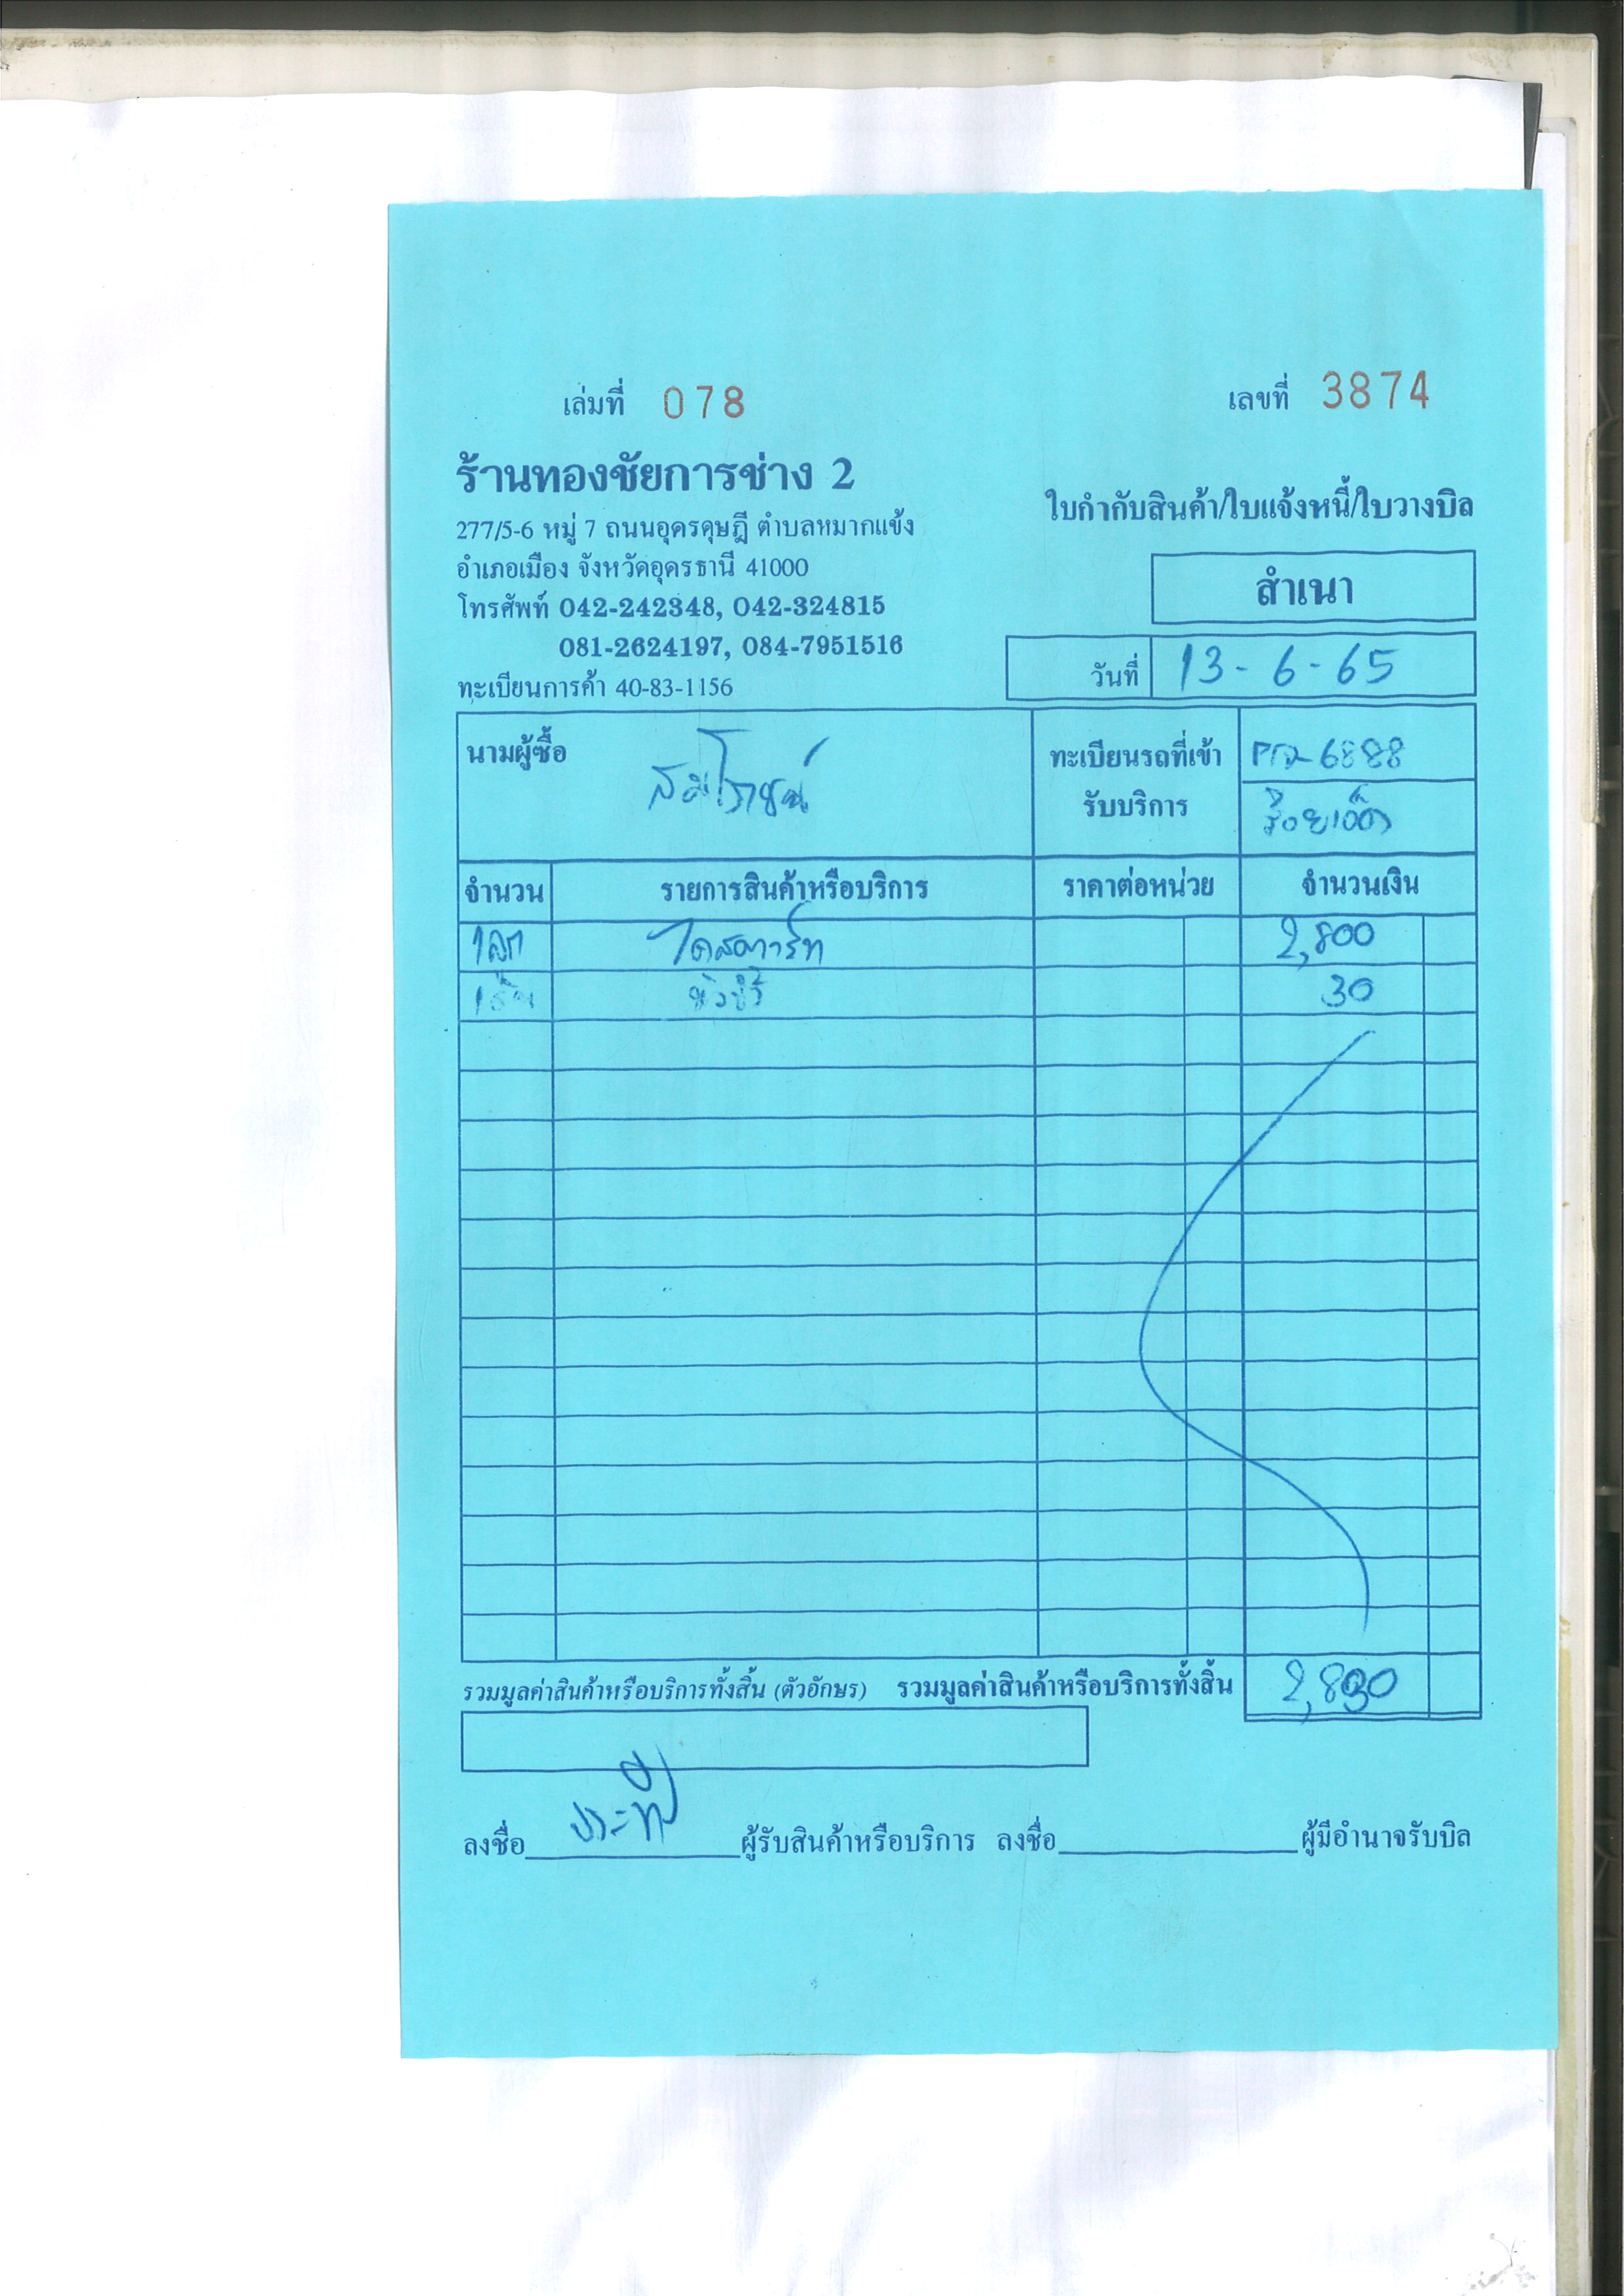 เล่มที่ 078
เลขที่ 3874
ร้านทองชัยการช่าง 2
ใบกำกับสินค้า/ใบแจ้งหนี้/ใบวางบิล
277/5-6 หมู่ 7 ถนนอุดรดุษฎี ตำบลหมากแข้ง
อำเภอเมือง จังหวัดอุดรธานี 41000
สำเนา
โทรศัพท์ 042-242348, 042-324815
081-2624197, 084-7951516
วันที่ 13-6-65
ทะเบียนการค้า 40-83-1156
นามผู้ซื้อ
ทะเบียนรถที่เข้า 6888
รับบริการ ร้อยเอ็ด
จำนวน รายการสินค้าหรือบริการ ราคาต่อหน่วย จำนวนเงิน
1 ลูก ไดสตาร์ท 2,800
1 30
รวมมูลค่าสินค้าหรือบริการทั้งสิ้น (ตัวอักษร) รวมมูลค่าสินค้าหรือบริการทั้งสิ้น 2,830
ลงชื่อ ผู้รับสินค้าหรือบริการ ลงชื่อ ผู้มีอำนาจรับบิล